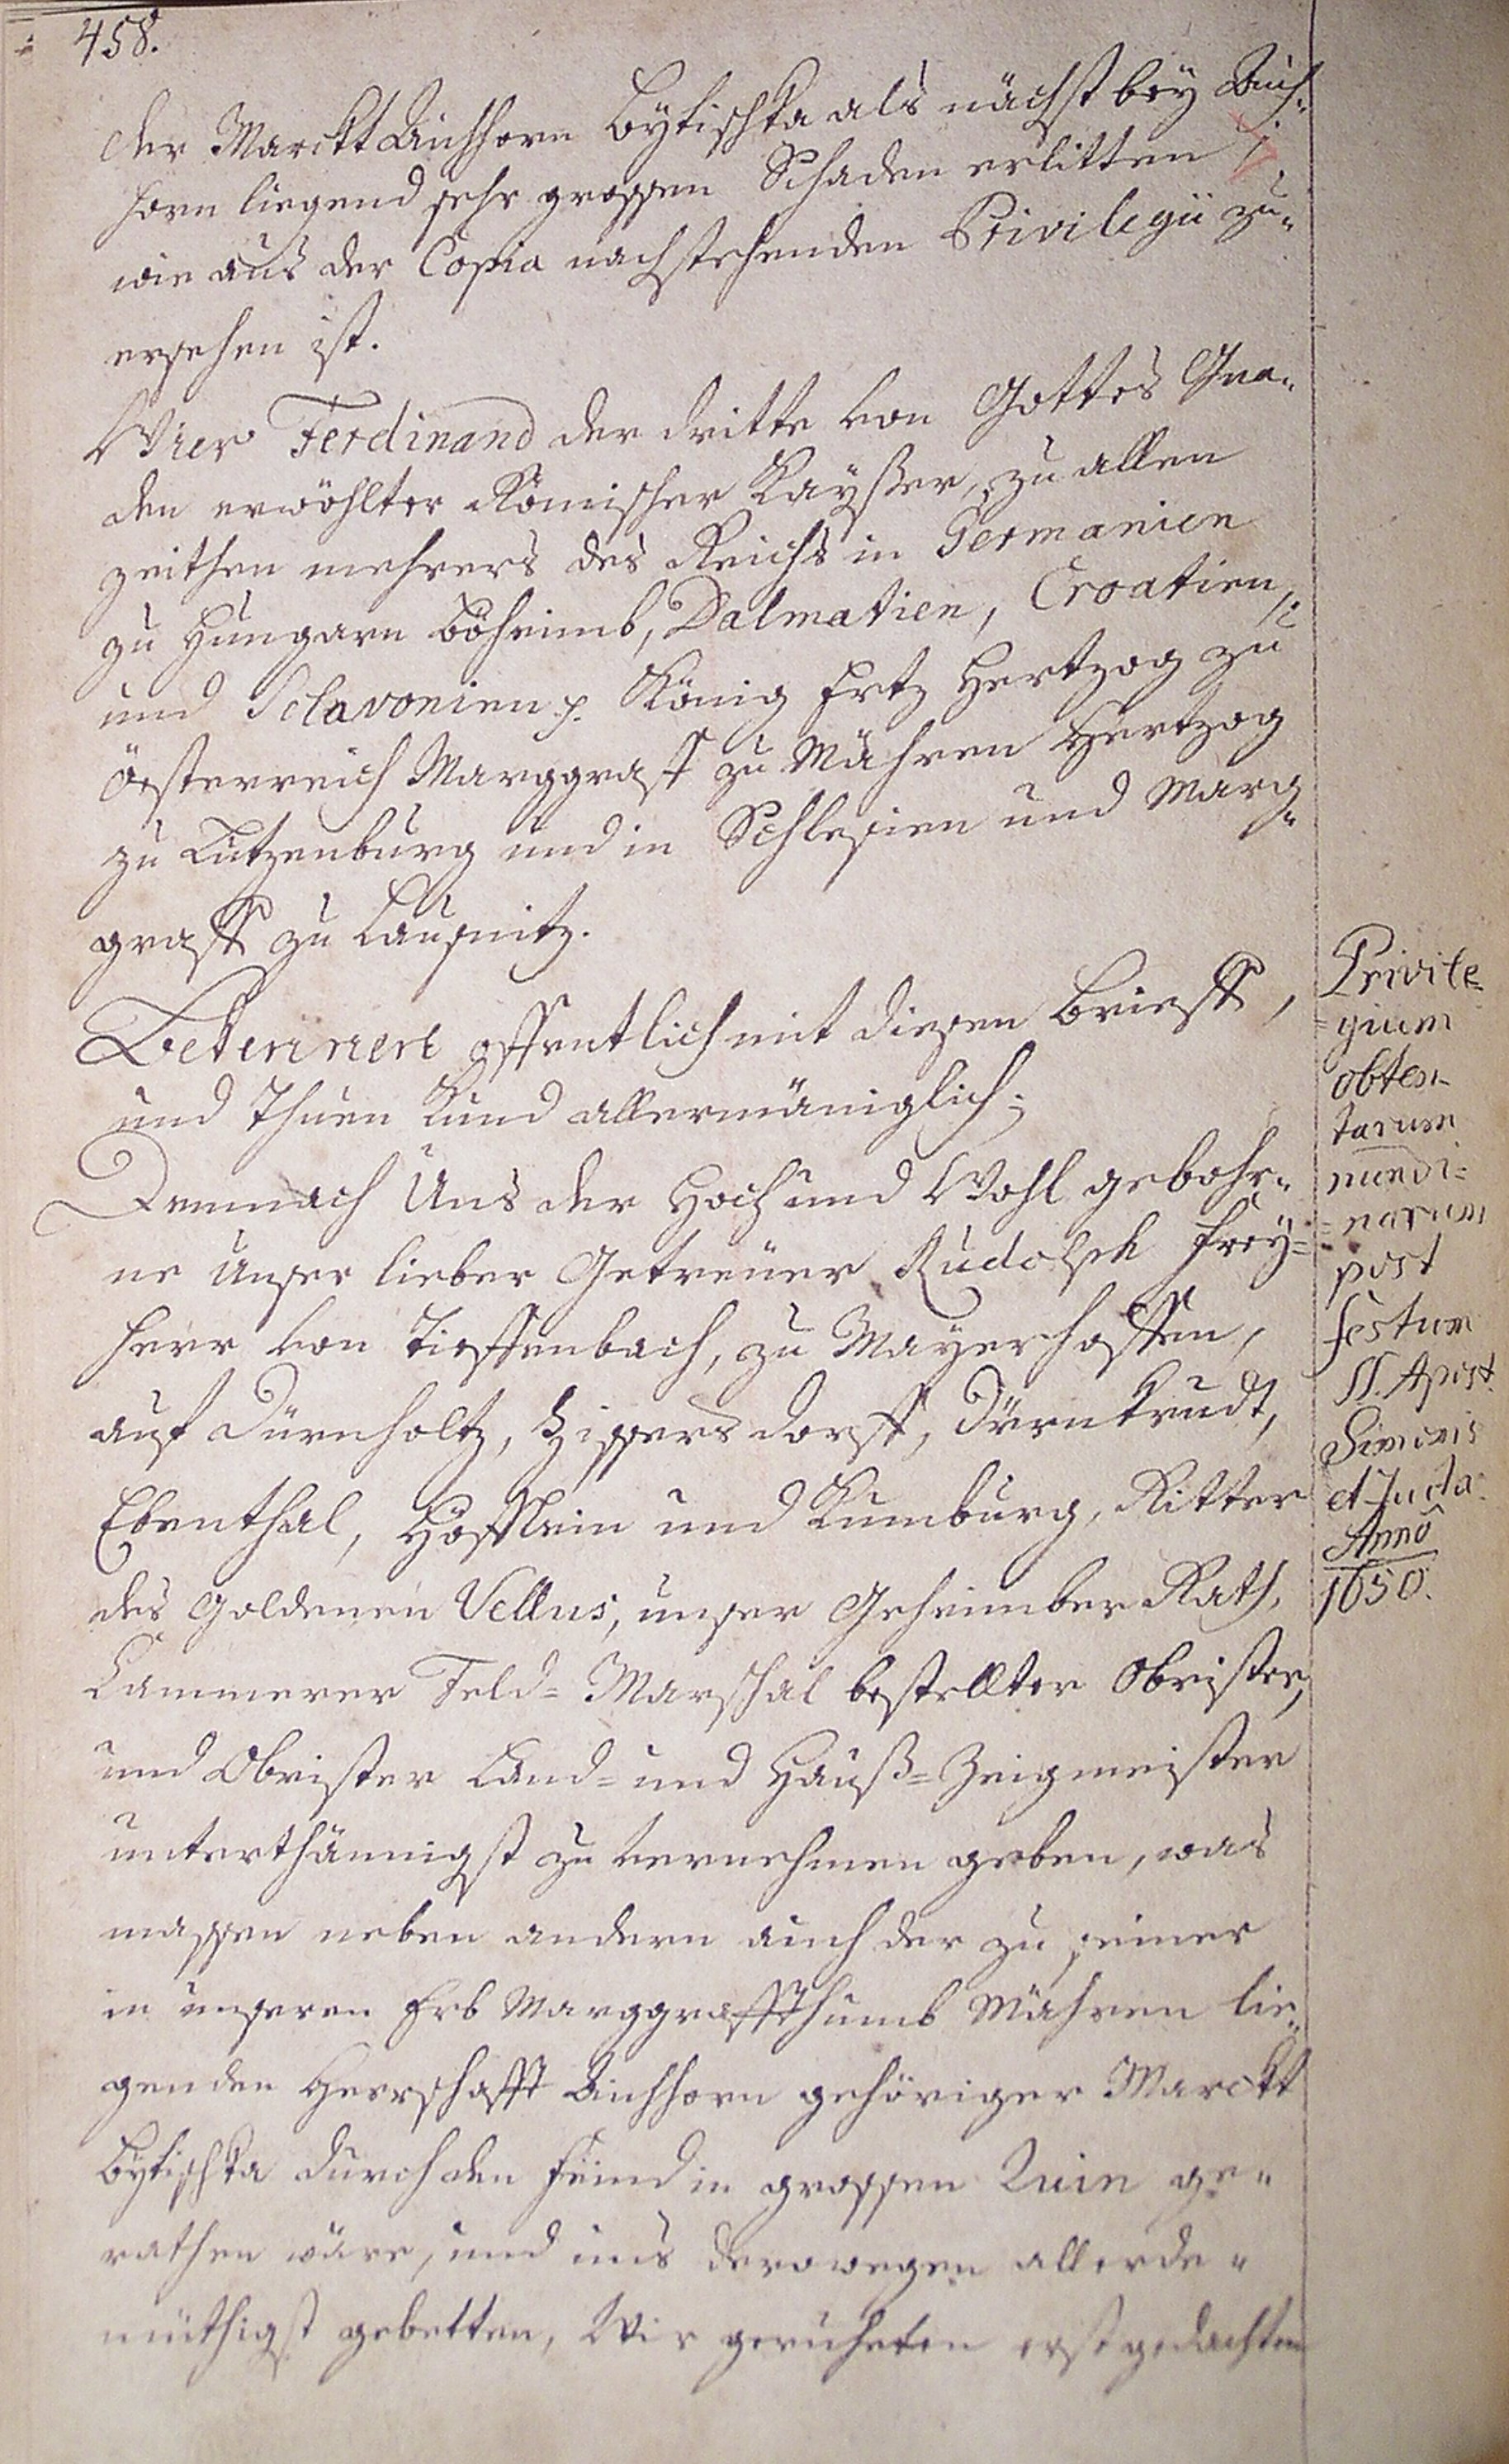 458.
der Marckt Aichhorn Bÿtischka als nächst beÿ Aich„
horn liegend sehr grossen Schaden erlitten
wie aus der Copia nachstehenden Privilegii zu„
ersehen ist.
Wier Ferdinand der dritte von Gottes Gna„
den erwöhlter Römischer Kaÿßer, zu allen
zeithen mehrers des Reichs in Germanien
zu Hungarn Böheimb, Dalmatien, Croatien,
und Sclavonien p. König Ertz Hertzog zu
Österreich Marggraff zu Mähren Hertzog
zu Lützenburg und in Schlesien und Marg„
graff zu Lausnitz.
Bekennen offentlich mit diesen Brieff,
und thuen Kund allermäniglich;
Demnach Uns der Hoch und Wohl gebohr„
ne Unser lieber Getreuer Rudolph Freÿ=
herr von Tieffenbach, zu Mayerhoffen,
auf Dürnholtz, Zissersdorff, Dürnkrudt,
Ebenthal, Höfflein und Kumburg, Ritter
des Goldenen Vellus, unser Geheimber Rath,
Cammerer Feld=Marschal bestellter Obrister,
und Obrister Land= und Hauß=Zeigmeister
unterthännigst zu vernehmen geben, was
massen neben andern auch der zu seiner
in unseren Erb Marggraffthumb Mähren lie„
genden Herrschafft Aichhorn gehöriger Marckt
Bÿtischka durch den Feind in grossen Ruin ge„
rathen wäre, und uns derowegen allerde„
müthigst gebetten, Wir geruheten erstgedachten
Privile=
=gium
obten-
tarum
nundi=
=narum
post
festum
SS. Apost.
Simonis
et Juda
Anno
1650.